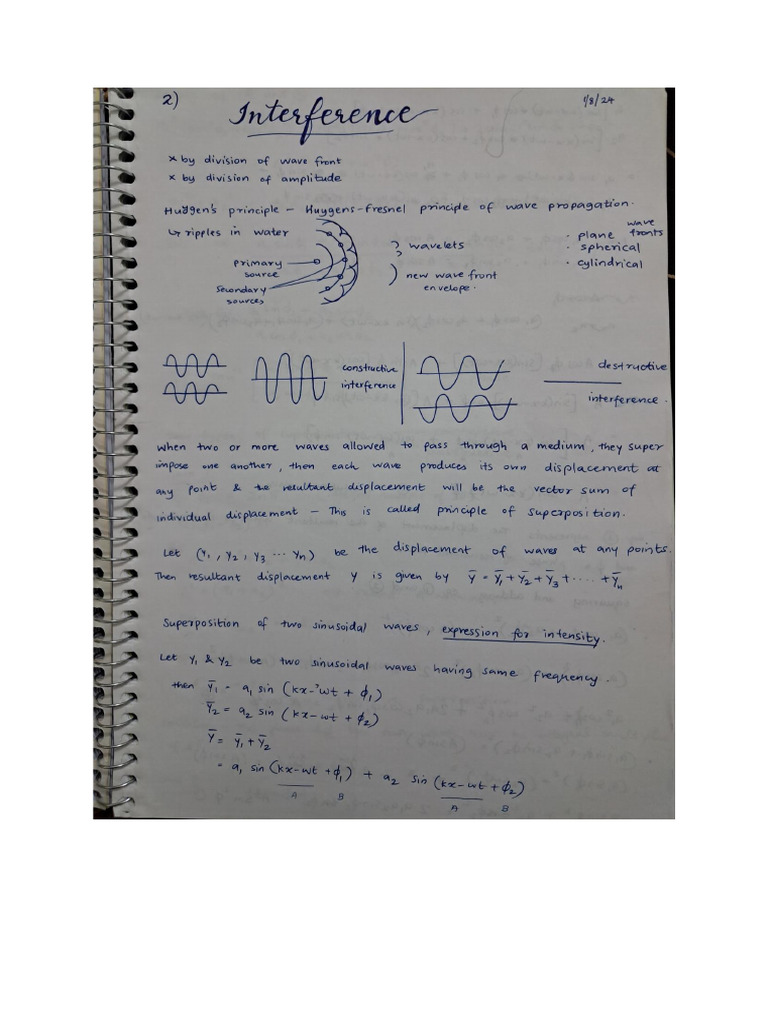 2)
Interference
1/8/24
× by division of wave front
× by division of amplitude
Huygen's principle – Huygens-Fresnel principle of wave propagation.
↳ ripples in water
primary source
secondary sources
wavelets
new wave front
envelope.
wave fronts
· plane
· spherical
· cylindrical
constructive
interference
destructive
interference.
When two or more waves allowed to pass through a medium, they super
impose one another, then each wave produces its own displacement at
any point & the resultant displacement will be the vector sum of
individual displacement – This is called principle of superposition.
Let (y₁, y₂, y₃ ... yn) be the displacement of waves at any points.
Then resultant displacement y is given by ȳ = ȳ₁ + ȳ₂ + ȳ₃ + ..... + ȳn
Superposition of two sinusoidal waves, expression for intensity.
Let y₁ & y₂ be two sinusoidal waves having same frequency.
then ȳ₁ = a₁ sin (kx - wt + ϕ₁)
ȳ₂ = a₂ sin (kx - wt + ϕ₂)
ȳ = ȳ₁ + ȳ₂
= a₁ sin (kx - wt + ϕ₁) + a₂ sin (kx - wt + ϕ₂)
A B A B